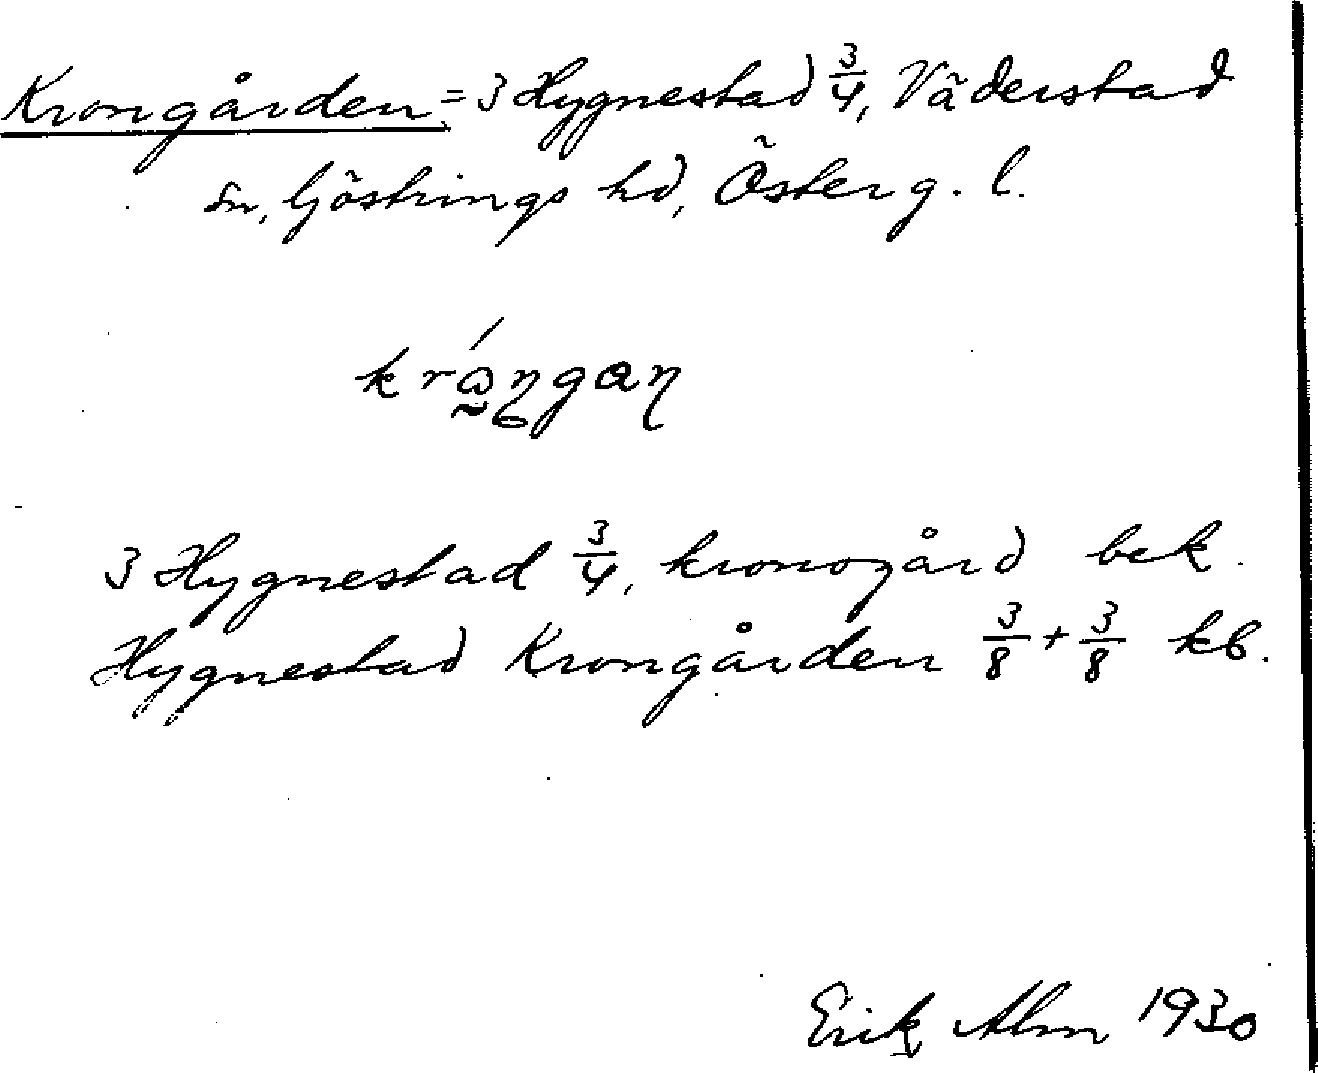 Krongården = 3 Hygnestad 3/4, Väderstad
sn, Göstrings hd, Österg. l.
3 Hygnestad 3/4, kronogård bek.
Hygnestad Krongården 3/8 + 3/8 kb.
Erik Alm 1930